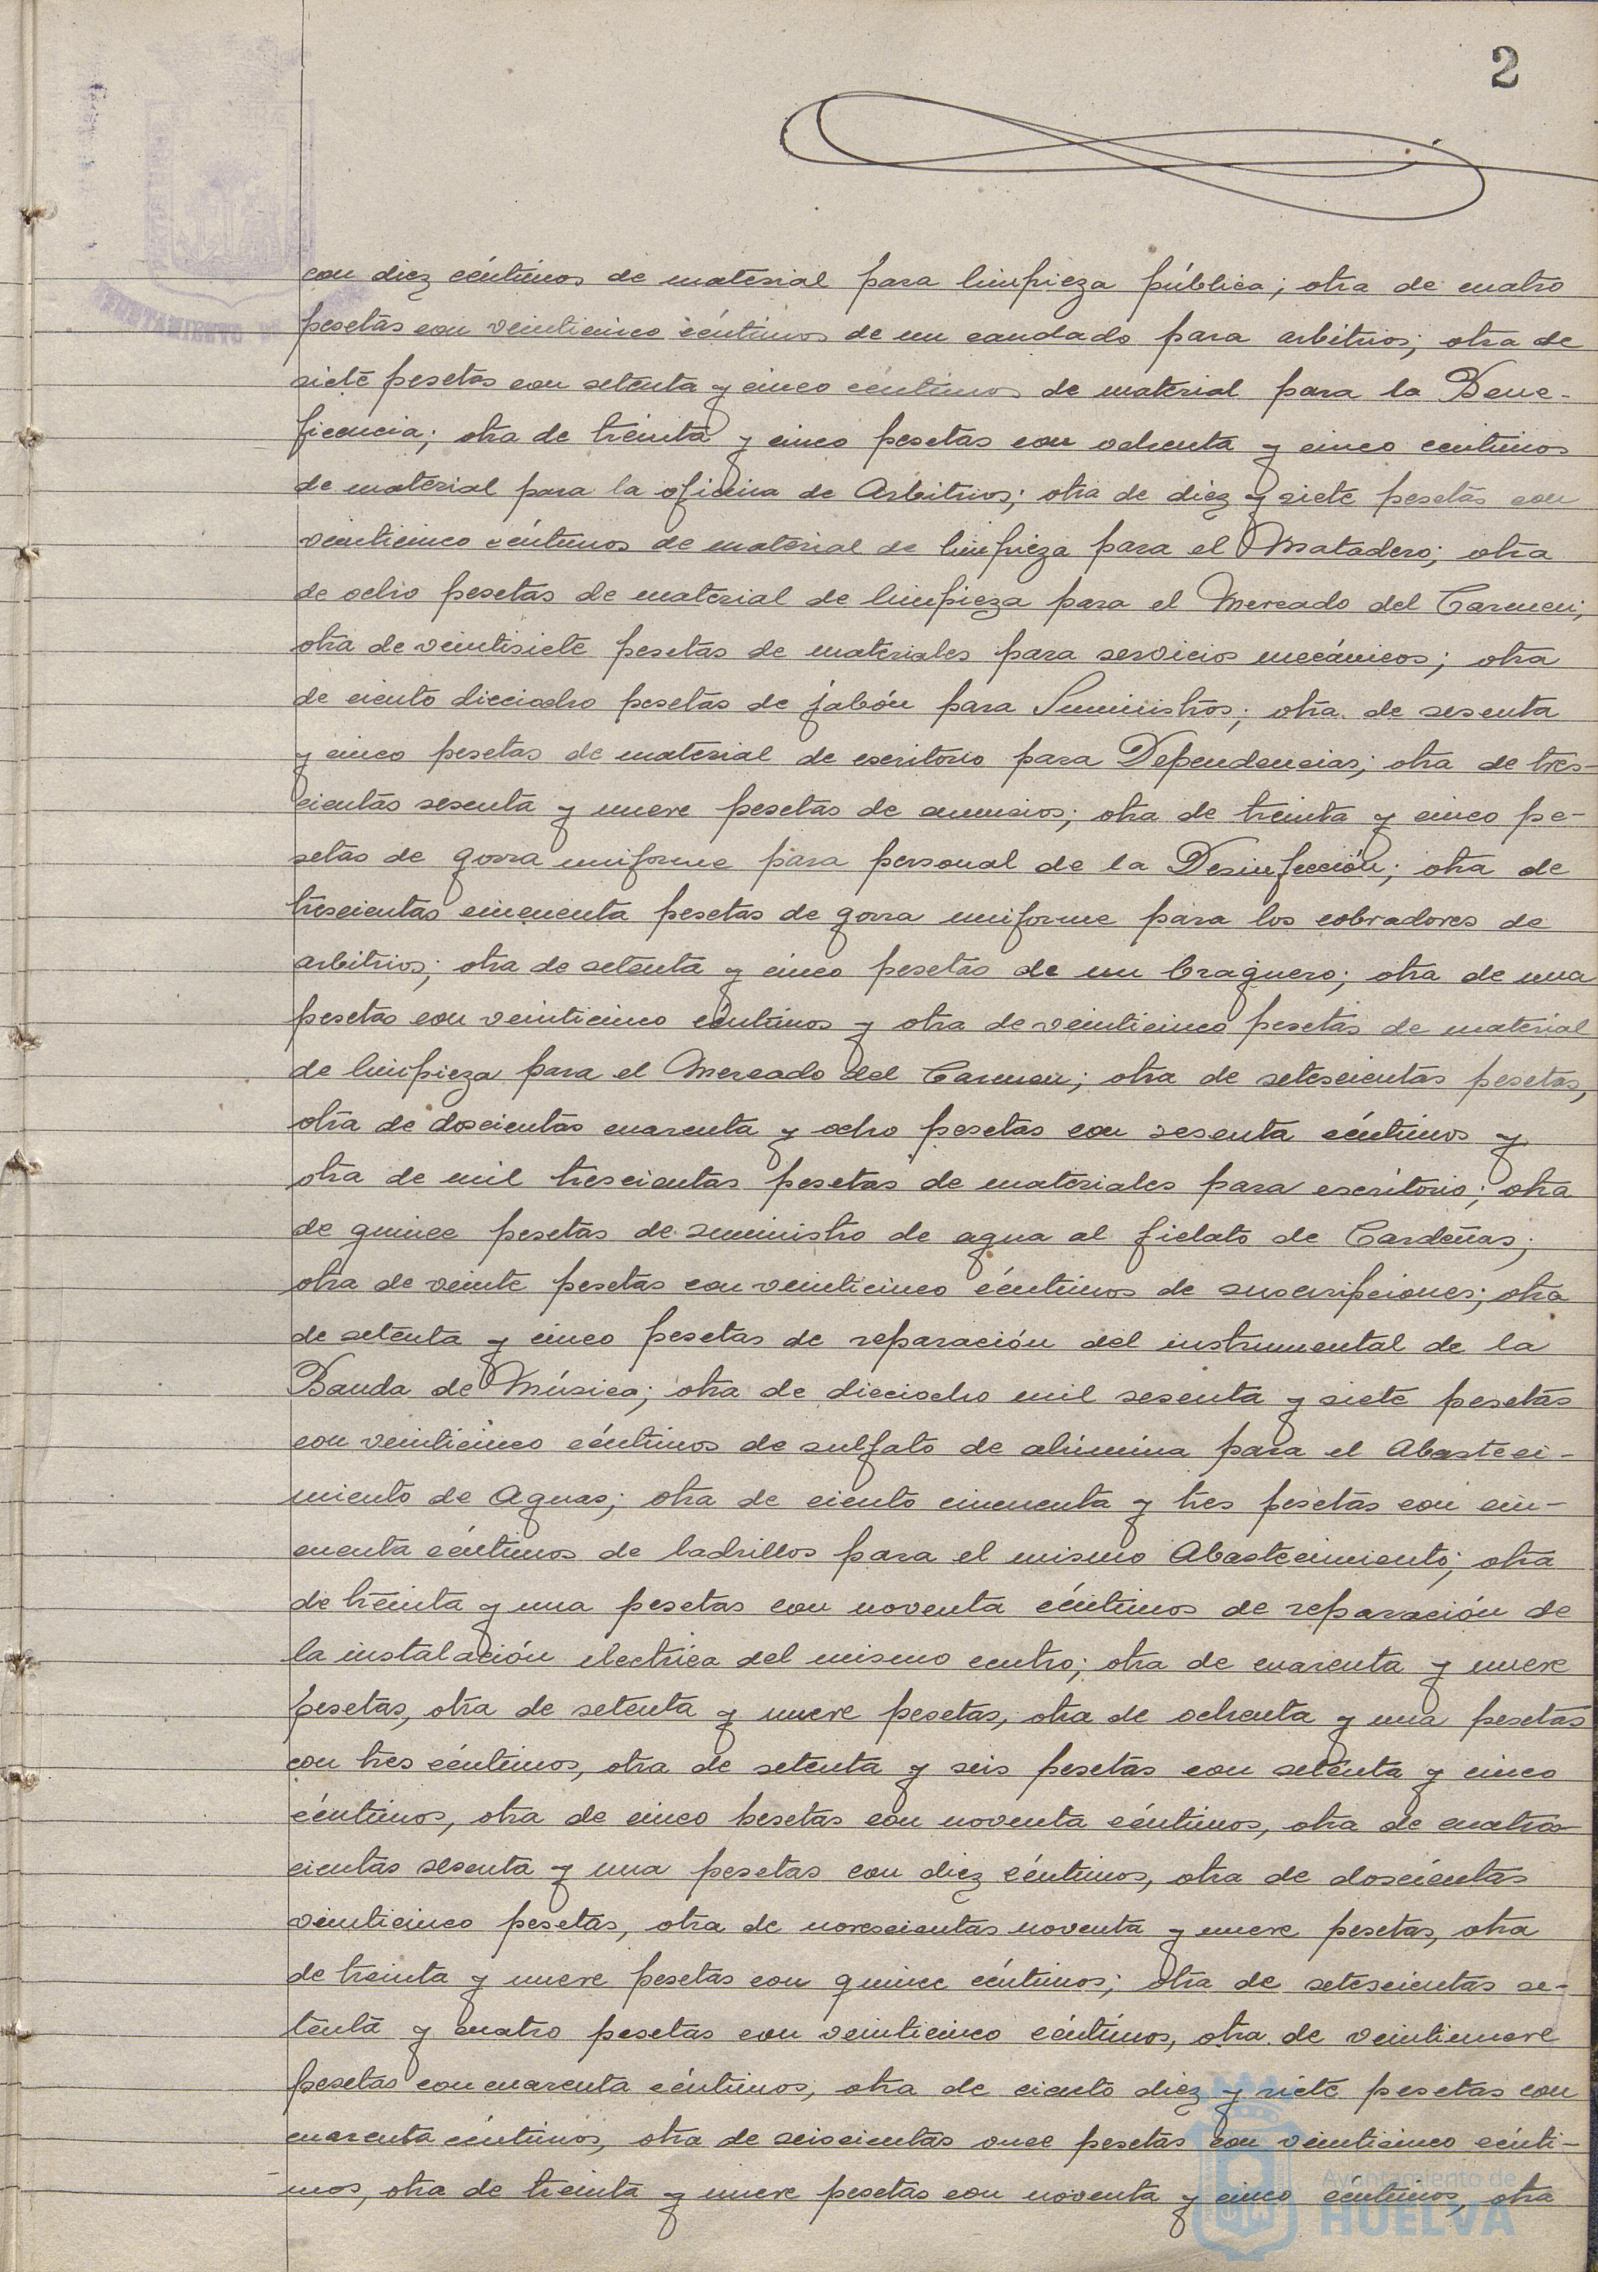 2
con diez céntimos de material para limpieza pública; otra de cuatro
pesetas con veinticinco céntimos de un candado para arbitrios; otra de
siete pesetas con setenta y cinco céntimos de material para la Bene-
ficencia; otra de treinta y cinco pesetas con ochenta y cinco centimos
de material para la oficina de Arbitrios; otra de diez y siete pesetas con
veinticinco céntimos de material de limpieza para el Matadero; otra
de ocho pesetas de material de limpieza para el Mercado del Carmen;
otra de veintisiete pesetas de materiales para servicios mecánicos; otra
de ciento dieciocho pesetas de jabón para Suministros; otra de sesenta
y cinco pesetas de material de escritorio para Dependencias; otra de tres-
cientas sesenta y nueve pesetas de anuncios; otra de treinta y cinco pe-
setas de gorra uniforme para personal de la Desinfección; otra de
trescientas cincuenta pesetas de gorra uniforme para los cobradores de
arbitrios; otra de setenta y cinco pesetas de un braguero; otra de una
pesetas con veinticinco céntimos y otra de veinticinco pesetas de material
de limpieza para el Mercado del Carmen; otra de setescientas pesetas,
otra de doscientas cuarenta y ocho pesetas con sesenta céntimos y
otra de mil trescientas pesetas de materiales para escritorio; otra
de quince pesetas de suministro de agua al fielato de Cardeñas;
otra de veinte pesetas con veinticinco céntimos de suscripciones; otra
de setenta y cinco pesetas de reparación del instrumental de la
Banda de Música; otra de dieciocho mil sesenta y siete pesetas
con veinticinco céntimos de sulfato de alúmina para el Abasteci-
miento de Aguas; otra de ciento cincuenta y tres pesetas con cin-
cuenta céntimos de ladrillos para el mismo Abastecimiento; otra
de treinta y una pesetas con noventa céntimos de reparación de
la instalación electrica del mismo centro; otra de cuarenta y nueve
pesetas, otra de setenta y nueve pesetas, otra de ochenta y una pesetas
con tres céntimos, otra de setenta y seis pesetas con setenta y cinco
céntimos, otra de cinco pesetas con noventa céntimos, otra de cuatro-
cientas sesenta y una pesetas con diez céntimos, otra de doscientas
veinticinco pesetas, otra de novescientas noventa y nueve pesetas, otra
de treinta y nueve pesetas con quince céntimos; otra de setescientas se-
tenta y cuatro pesetas con veinticinco céntimos, otra de veintinueve
pesetas con cuarenta céntimos, otra de ciento diez y siete pesetas con
cuarenta céntimos, otra de seiscientas once pesetas con veinticinco cénti-
mos, otra de treinta y nueve pesetas con noventa y cinco céntimos, otra
Ayuntamiento de
HUELVA